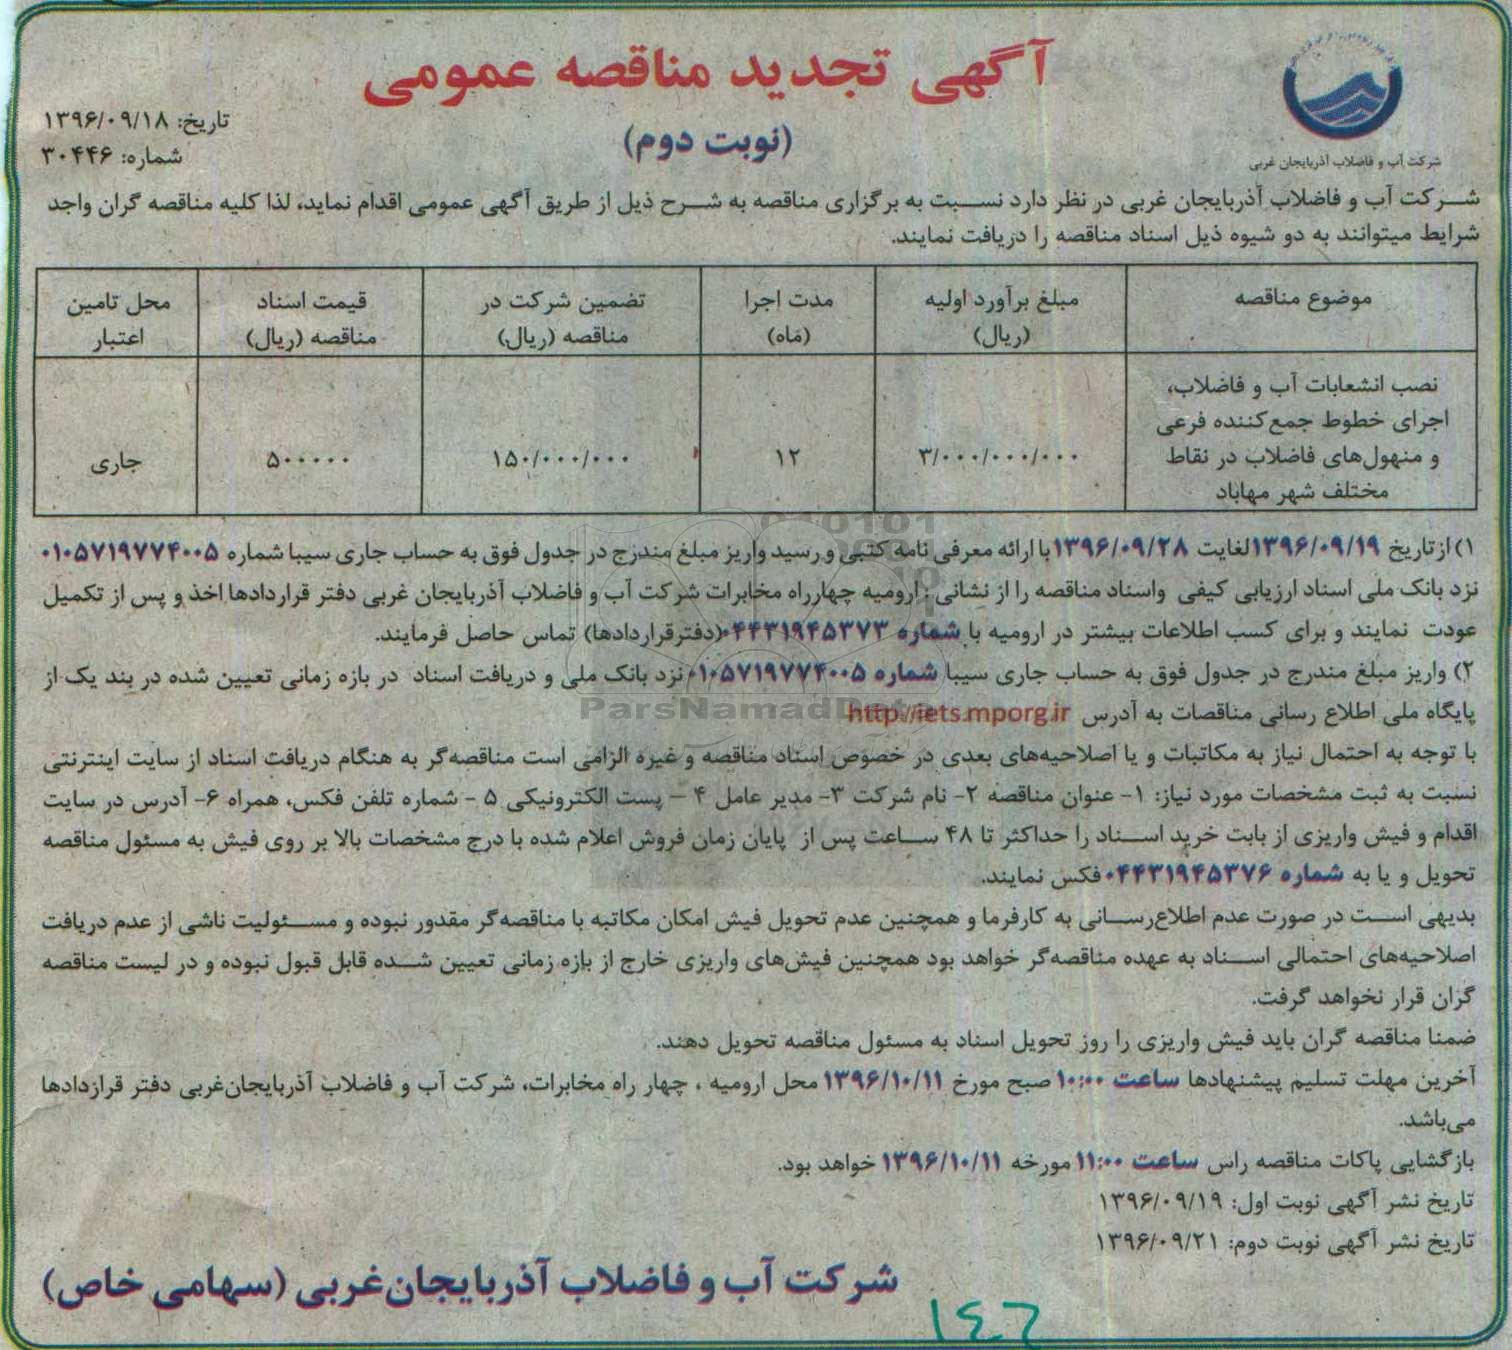 آگهی تجدید مناقصه عمومی
(نوبت دوم)
تاریخ: ۱۳۹۶/۰۹/۱۸
شماره: ۳۰۴۴۶
شرکت آب و فاضلاب آذربایجان غربی
شرکت آب و فاضلاب آذربایجان غربی در نظر دارد نسبت به برگزاری مناقصه به شرح ذیل از طریق آگهی عمومی اقدام نماید، لذا کلیه مناقصه گران واجد
شرایط میتوانند به دو شیوه ذیل اسناد مناقصه را دریافت نمایند.
موضوع مناقصه
مبلغ برآورد اولیه
(ریال)
مدت اجرا
(ماه)
تضمین شرکت در
مناقصه (ریال)
قیمت اسناد
مناقصه (ریال)
محل تامین
اعتبار
نصب انشعابات آب و فاضلاب،
اجرای خطوط جمع‌کننده فرعی
و منهول‌های فاضلاب در نقاط
مختلف شهر مهاباد
۳/۰۰۰/۰۰۰/۰۰۰
۱۲
۱۵۰/۰۰۰/۰۰۰
۵۰۰۰۰۰
جاری
۱) از تاریخ ۱۳۹۶/۰۹/۱۹ لغایت ۱۳۹۶/۰۹/۲۸ با ارائه معرفی نامه کتبی و رسید واریز مبلغ مندرج در جدول فوق به حساب جاری سیبا شماره ۰۱۰۵۷۱۹۷۷۴۰۰۵
نزد بانک ملی اسناد ارزیابی کیفی واسناد مناقصه را از نشانی : ارومیه چهارراه مخابرات شرکت آب و فاضلاب آذربایجان غربی دفتر قراردادها اخذ و پس از تکمیل
عودت نمایند و برای کسب اطلاعات بیشتر در ارومیه با شماره ۰۴۴۳۱۹۴۵۳۷۳ (دفترقراردادها) تماس حاصل فرمایند.
۲) واریز مبلغ مندرج در جدول فوق به حساب جاری سیبا شماره ۰۱۰۵۷۱۹۷۷۴۰۰۵ نزد بانک ملی و دریافت اسناد در بازه زمانی تعیین شده در بند یک از
پایگاه ملی اطلاع رسانی مناقصات به آدرس http://iets.mporg.ir
ParsNamadData
با توجه به احتمال نیاز به مکاتبات و یا اصلاحیه‌های بعدی در خصوص اسناد مناقصه و غیره الزامی است مناقصه‌گر به هنگام دریافت اسناد از سایت اینترنتی
نسبت به ثبت مشخصات مورد نیاز: ۱- عنوان مناقصه ۲- نام شرکت ۳- مدیر عامل ۴ – پست الکترونیکی ۵ - شماره تلفن فکس، همراه ۶- آدرس در سایت
اقدام و فیش واریزی از بابت خرید اسناد را حداکثر تا ۴۸ ساعت پس از پایان زمان فروش اعلام شده با درج مشخصات بالا بر روی فیش به مسئول مناقصه
تحویل و یا به شماره ۰۴۴۳۱۹۴۵۳۷۶ فکس نمایند.
بدیهی است در صورت عدم اطلاع‌رسانی به کارفرما و همچنین عدم تحویل فیش امکان مکاتبه با مناقصه‌گر مقدور نبوده و مسئولیت ناشی از عدم دریافت
اصلاحیه‌های احتمالی اسناد به عهده مناقصه‌گر خواهد بود همچنین فیش‌های واریزی خارج از بازه زمانی تعیین شده قابل قبول نبوده و در لیست مناقصه
گران قرار نخواهد گرفت.
ضمنا مناقصه گران باید فیش واریزی را روز تحویل اسناد به مسئول مناقصه تحویل دهند.
آخرین مهلت تسلیم پیشنهادها ساعت ۱۰:۰۰ صبح مورخ ۱۳۹۶/۱۰/۱۱ محل ارومیه ، چهار راه مخابرات، شرکت آب و فاضلاب آذربایجان‌غربی دفتر قرازدادها
می‌باشد.
بازگشایی پاکات مناقصه راس ساعت ۱۱:۰۰ مورخه ۱۳۹۶/۱۰/۱۱ خواهد بود.
تاریخ نشر آگهی نوبت اول: ۱۳۹۶/۰۹/۱۹
تاریخ نشر آگهی نوبت دوم: ۱۳۹۶/۰۹/۲۱
شرکت آب و فاضلاب آذربایجان‌غربی (سهامی خاص)